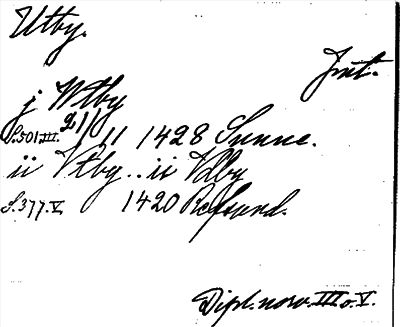 Utby.
Jmt.
j Wtby
S. 501. III. 21/11 1428 Sunne.
ii Vtby .. ii Vdby
S. 377. V. 1420 Refsund.
Dipl. norv. III o. V.